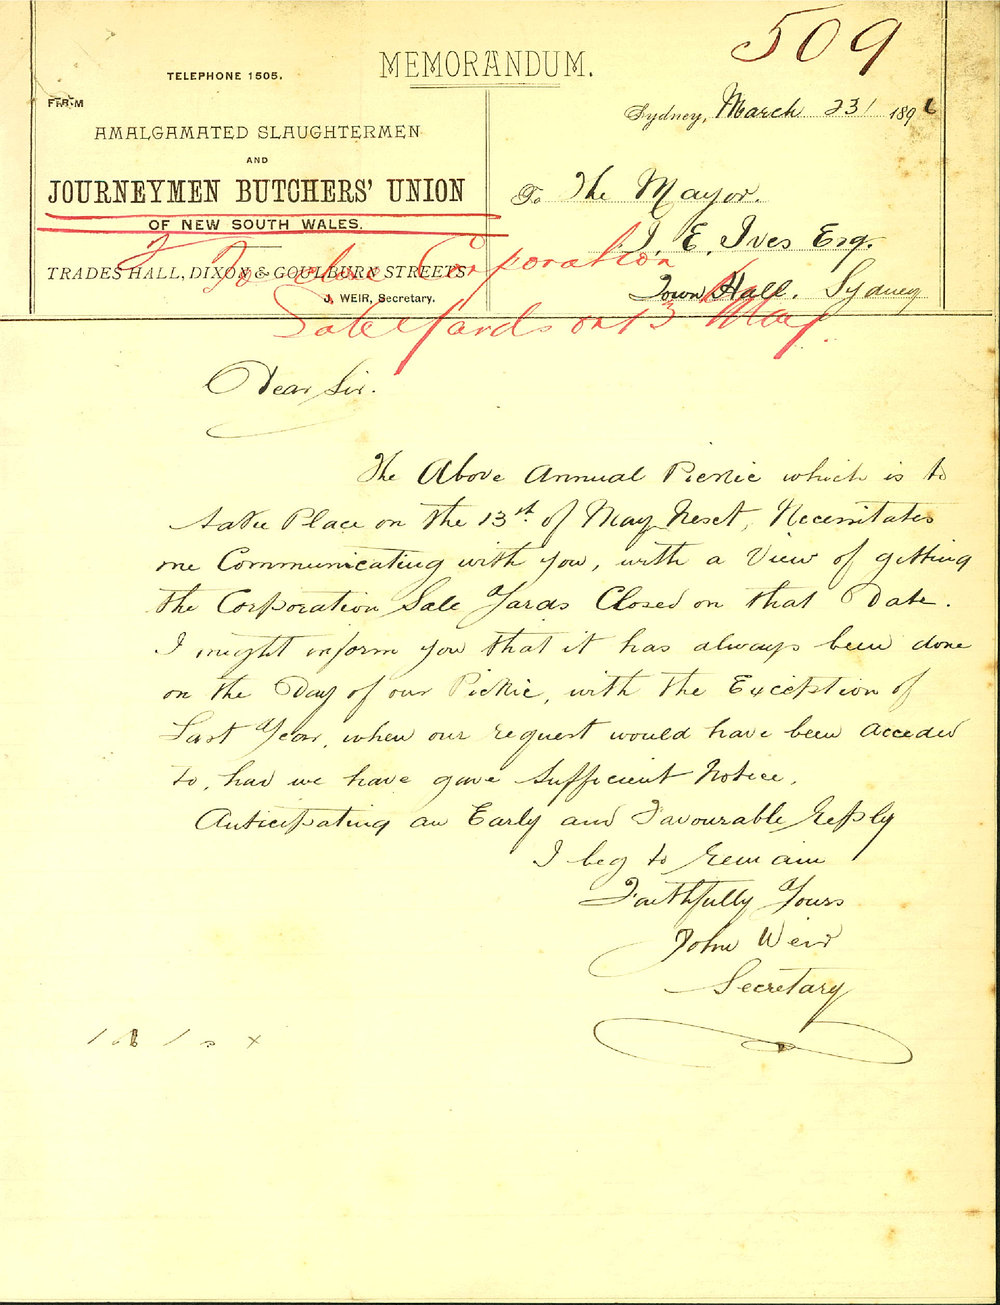 509
MEMORANDUM.
TELEPHONE 1505.
FROM
AMALGAMATED SLAUGHTERMEN
AND
JOURNEYMEN BUTCHERS' UNION
OF NEW SOUTH WALES.
TRADES HALL, DIXON & GOULBURN STREETS
J. WEIR, Secretary.
Sydney, March 23 1896
To The Mayor.
I. E. Ives Esq.
Town Hall. Sydney
To close Corporation
Sale Yards on 13 May.
Dear Sir.
The Above Annual Picnic which is to
take Place on the 13st. of May Next, Necessitates
me Communicating with you, with a View of getting
the Corporation Sale Yards Closed on that Date.
I might inform you that it has always been done
on the Day of our Picnic, with the Exception of
Last Year, when our request would have been acceded
to, had we have gave Sufficient Notice.
Anticipating an Early and Favourable Reply
I beg to remain
Faithfully Yours
John Weir
Secretary